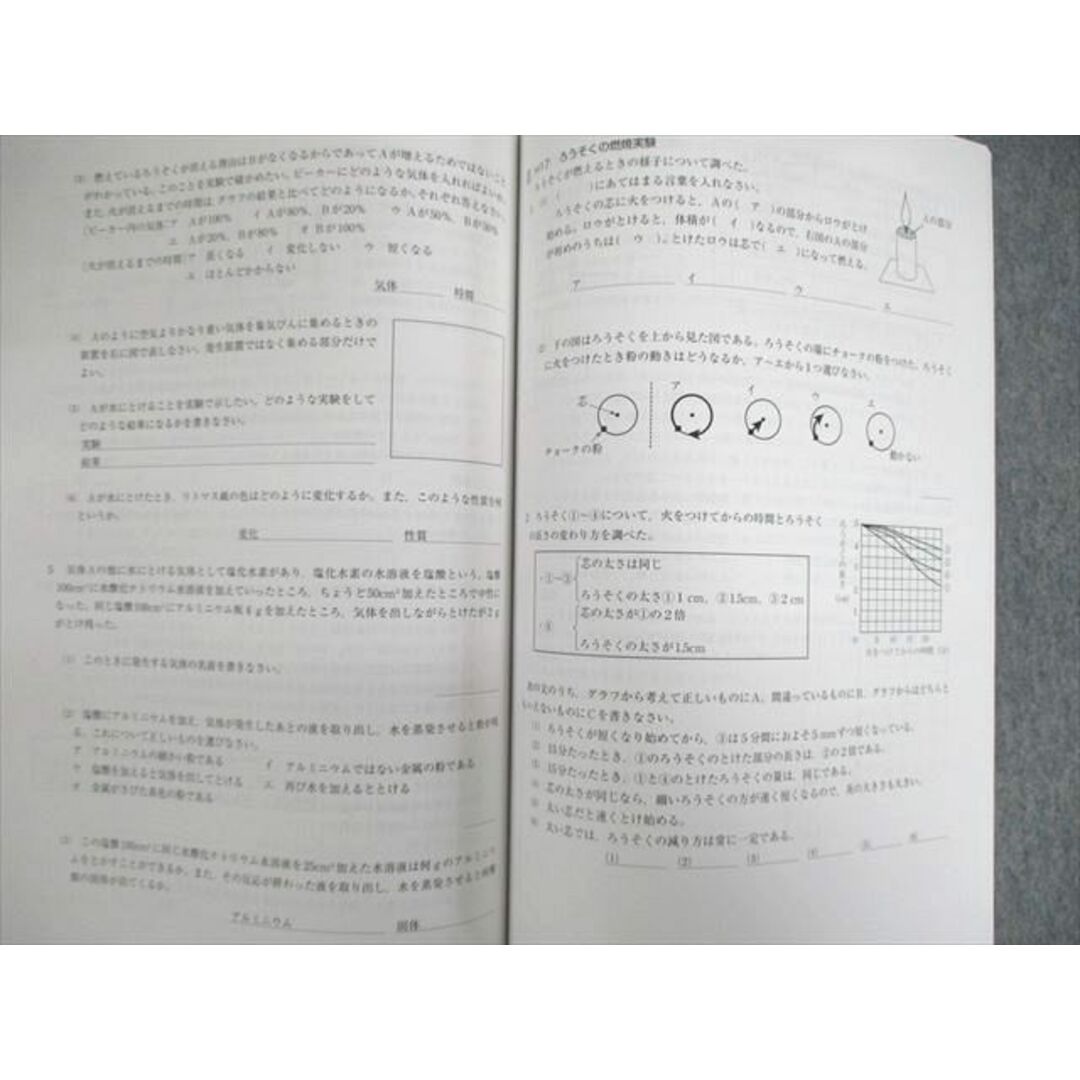 (3) 燃えているろうそくが消える理由はBがなくなるからであってAが増えるためではないこと
がわかっている。このことを実験で確かめたい。ビーカーにどのような気体を入れればよいか。
また、火が消えるまでの時間は、グラフの結果と比べてどのようになるか。それぞれ答えなさい。
〔ビーカー内の気体〕ア Aが100% イ Aが80%、Bが20% ウ Aが50%、Bが50%
エ Aが20%、Bが80% オ Bが100%
〔火が消えるまでの時間〕ア 長くなる イ 変化しない ウ 短くなる
エ ほとんどかからない
気体 時間
(4) Aのように空気よりかなり重い気体を集気びんに集めるときの
装置を右に図で表しなさい。発生装置ではなく集める部分だけで
よい。
(5) Aが水にとけることを実験で示したい。どのような実験をして
どのような結果になるかを書きなさい。
実験
結果
(6) Aが水にとけたとき、リトマス紙の色はどのように変化するか。また、このような性質を何
というか。
変化 性質
5 気体Aの他に水にとける気体として塩化水素があり、塩化水素の水溶液を塩酸という。塩酸
100cm³に水酸化ナトリウム水溶液を加えていったところ、ちょうど50cm³加えたところで中性に
なった。同じ塩酸100cm³にアルミニウム板4gを加えたところ、気体を出しながらとけたが2g
がとけ残った。
(1) このときに発生する気体の名前を書きなさい。
(2) 塩酸にアルミニウムを加え、気体が発生したあとの液を取り出し、水を蒸発させると粉が残
る。これについて正しいものを選びなさい。
ア アルミニウムの細かい粉である イ アルミニウムではない金属の粉である
ウ 塩酸を加えると気体を出してとける エ 再び水を加えるととける
オ 金属がさびた黒色の粉である
(3) この塩酸100cm³に同じ水酸化ナトリウム水溶液を25cm³加えた水溶液は何gのアルミニウ
ムをとかすことができるか。また、その反応が終わった液を取り出し、水を蒸発させると何種
類の固体が出てくるか。
アルミニウム 固体
no17 ろうそくの燃焼実験
ろうそくが燃えるときの様子について調べた。
( )にあてはまる言葉を入れなさい。
ろうそくの芯に火をつけると、Aの( ア )の部分からロウがとけ
始める。ロウがとけると、体積が( イ )なるので、右図のAの部分
が初めのうちは( ウ )。とけたロウは芯で( エ )になって燃える。
Aの部分
ア イ ウ エ
(2) 下の図はろうそくを上から見た図である。ろうそくの端にチョークの粉をつけた。ろうそく
に火をつけたとき粉の動きはどうなるか、ア~エから1つ選びなさい。
芯 ア イ ウ エ
チョークの粉 動かない
2 ろうそく①~④について、火をつけてからの時間とろうそく
の長さの変わり方を調べた。
・①~③ 芯の太さは同じ
ろうそくの太さ①1cm、②1.5cm、③2cm
・④ 芯の太さが①の2倍
ろうそくの太さが1.5cm
ろうそくの長さ
(cm)
火をつけてからの時間(分)
次の文のうち、グラフから考えて正しいものにA、間違っているものにB、グラフからはどちらと
もいえないものにCを書きなさい。
(1) ろうそくが短くなり始めてから、③は5分間におよそ5mmずつ短くなっている。
(2) 15分たったとき、①のろうそくのとけた部分の長さは、②の2倍である。
(3) 15分たったとき、①と④のとけたろうそくの量は、同じである。
(4) 芯の太さが同じなら、細いろうそくの方が速く短くなるので、炎の大きさも大きい。
(5) 太い芯だと速くとけ始める。
(6) 太い芯では、ろうそくの減り方は常に一定である。
(1) (2) (3) (4) (5) (6)